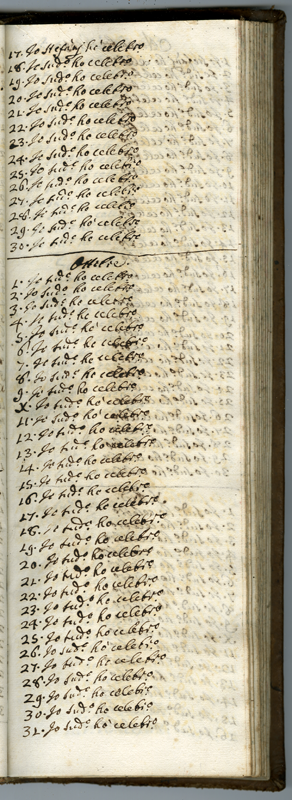 17. Jo Stefanj ho celebro
18. Jo sud.o ho celebro
19. Jo sud.o ho celebro
20. Jo sud.o ho celebro
21. Jo sud.o ho celebro
22. Jo sud.o ho celebro
23. Jo sud.o ho celebro
24. Jo sud.o ho celebro
25. Jo sud.o ho celebro
26. Jo sud.o ho celebro
27. Jo sud.o ho celebro
28. Jo sud.o ho celebro
29. Jo sud.o ho celebro
30. Jo sud.o ho celebro
Ottobre
1. Jo sud.o ho celebro
2. Jo sud.o ho celebro
3. Jo sud.o ho celebro
4. Jo sud.o ho celebro
5. Jo sud.o ho celebro
6. Jo sud.o ho celebro
7. Jo sud.o ho celebro
8. Jo sud.o ho celebro
9. Jo sud.o ho celebro
X. Jo sud.o ho celebro
11. Jo sud.o ho celebro
12. Jo sud.o ho celebro
13. Jo sud.o ho celebro
14. Jo sud.o ho celebro
15. Jo sud.o ho celebro
16. Jo sud.o ho celebro
17. Jo sud.o ho celebro
18. Jo sud.o ho celebro
19. Jo sud.o ho celebro
20. Jo sud.o ho celebro
21. Jo sud.o ho celebro
22. Jo sud.o ho celebro
23. Jo sud.o ho celebro
24. Jo sud.o ho celebro
25. Jo sud.o ho celebro
26. Jo sud.o ho celebro
27. Jo sud.o ho celebro
28. Jo sud.o ho celebro
29. Jo sud.o ho celebro
30. Jo sud.o ho celebro
31. Jo sud.o ho celebro